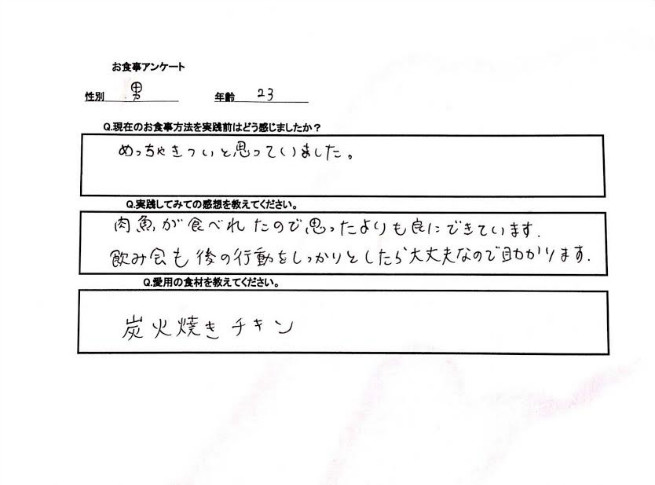 お食事アンケート
性別 男 年齢 23
Q.現在のお食事方法を実践前はどう感じましたか？
めっちゃきついと思っていました。
Q.実践してみての感想を教えてください。
肉魚が食べれたので思ったよりも良にできています.
飲み会も後の行動をしっかりとしたら大丈夫なので助かります.
Q.愛用の食材を教えてください。
炭火焼きチキン